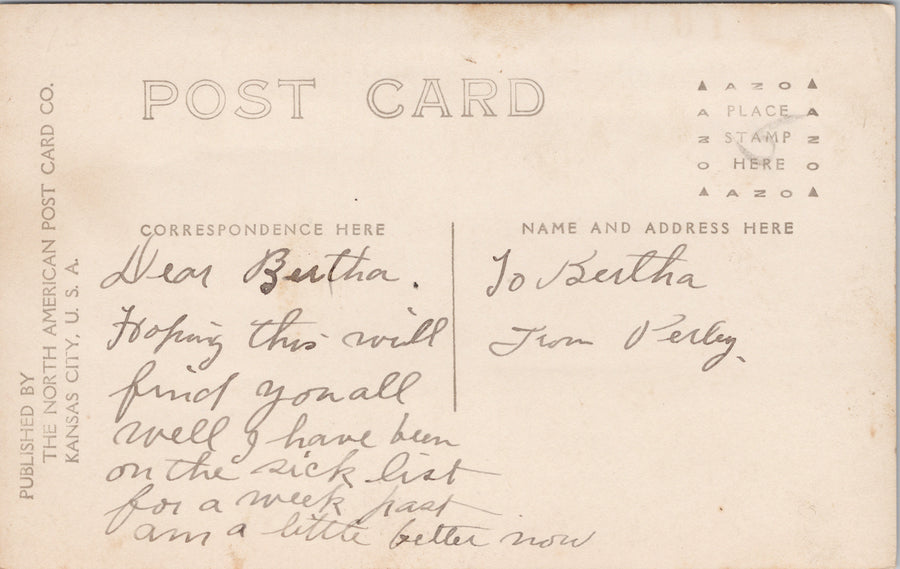 POST CARD
▲ AZO ▲
A PLACE A
N STAMP N
O HERE O
▲ AZO ▲
PUBLISHED BY
THE NORTH AMERICAN POST CARD CO.
KANSAS CITY, U. S. A.
CORRESPONDENCE HERE
Dear Bertha.
Hoping this will
find you all
well I have been
on the sick list
for a week past
am a little better now
NAME AND ADDRESS HERE
To Bertha
From Perley.